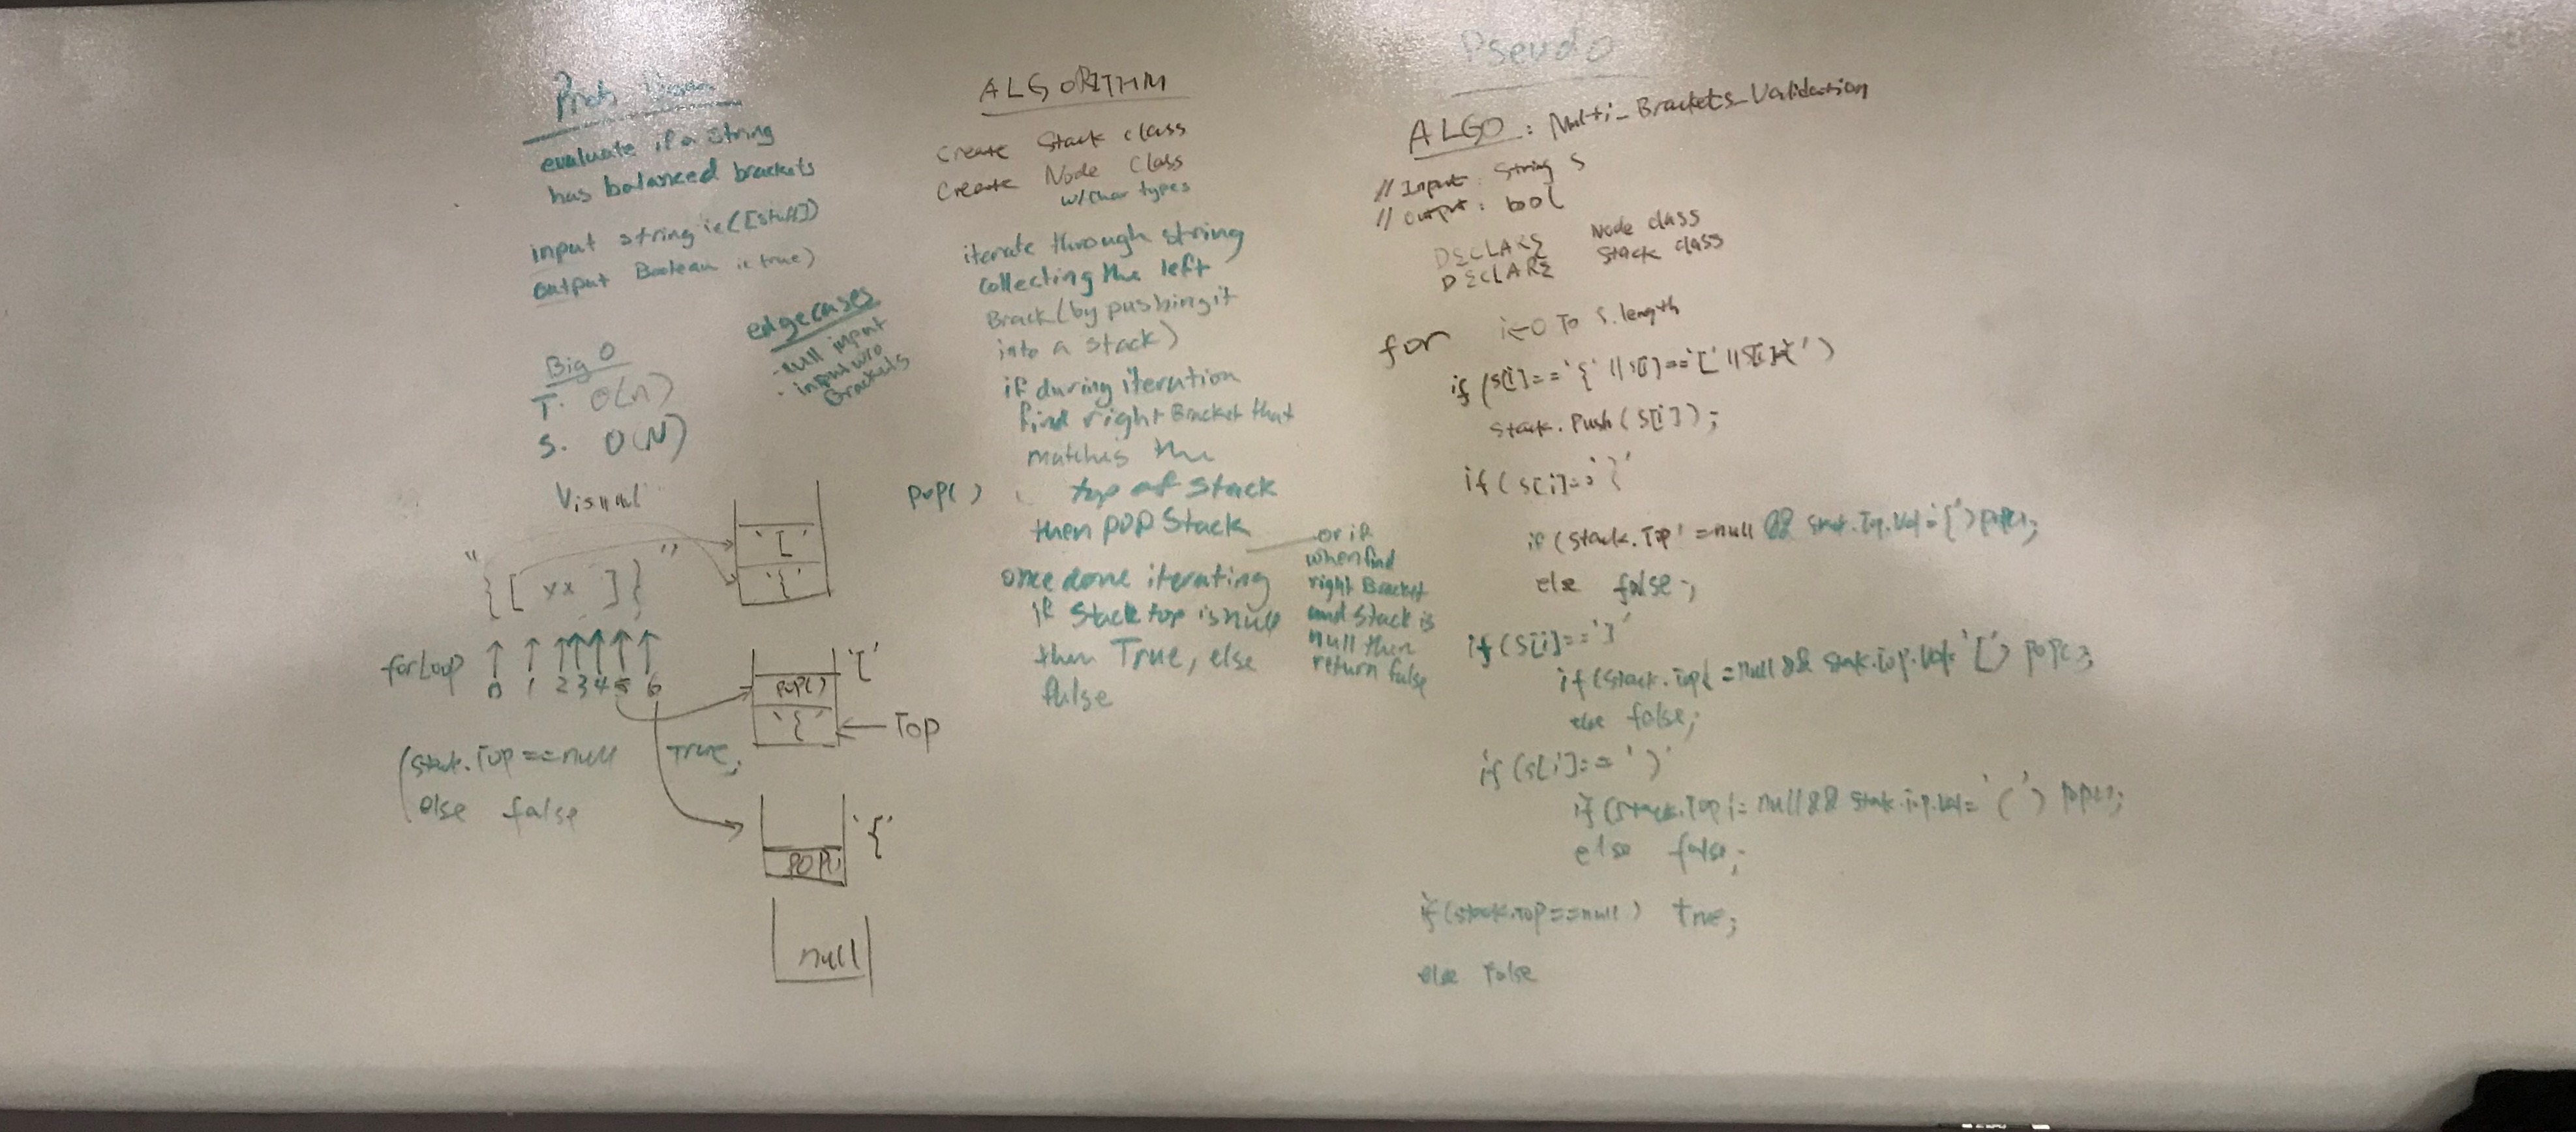 evaluate if a string
has balanced brackets
input string ie ([stuff])
output Boolean ie true)
edgecases
- null input
- input w/o
Brackets
Big O
T. O(n)
S. O(N)
Visual
"{[ xx ]}"
'['
'{'
forLoop
0 1 2 3 4 5 6
'['
POP()
'{'
Top
(stack.Top == null True;
else false
'{'
POP()
null
ALGORITHM
Create Stack class
Create Node Class
w/char types
iterate through string
collecting the left
Brack (by pushing it
into a stack)
if during iteration
find right Bracket that
matches the
POP()
top of stack
then POP Stack
once done iterating
if Stack top is null
then True, else
false
or if
when find
right Bracket
and Stack is
null then
return false
Pseudo
ALGO: Multi_Brackets_Validation
// Input: String S
// Output: bool
DECLARE Node class
DECLARE Stack class
for i←0 To S.length
if (S[i]=='{' || S[i]=='[' || S[i]
Stack.Push(S[i]);
if (S[i]=='}'
if (Stack.Top != null && Stack.Top.Val='{') POP();
else false;
if (S[i]==']'
if (Stack.Top != null && Stack.Top.Val='[') POP();
else false;
if (S[i]==')'
if (Stack.Top != null && Stack.Top.Val='(') POP();
else false;
if (stack.Top==null) true;
else False